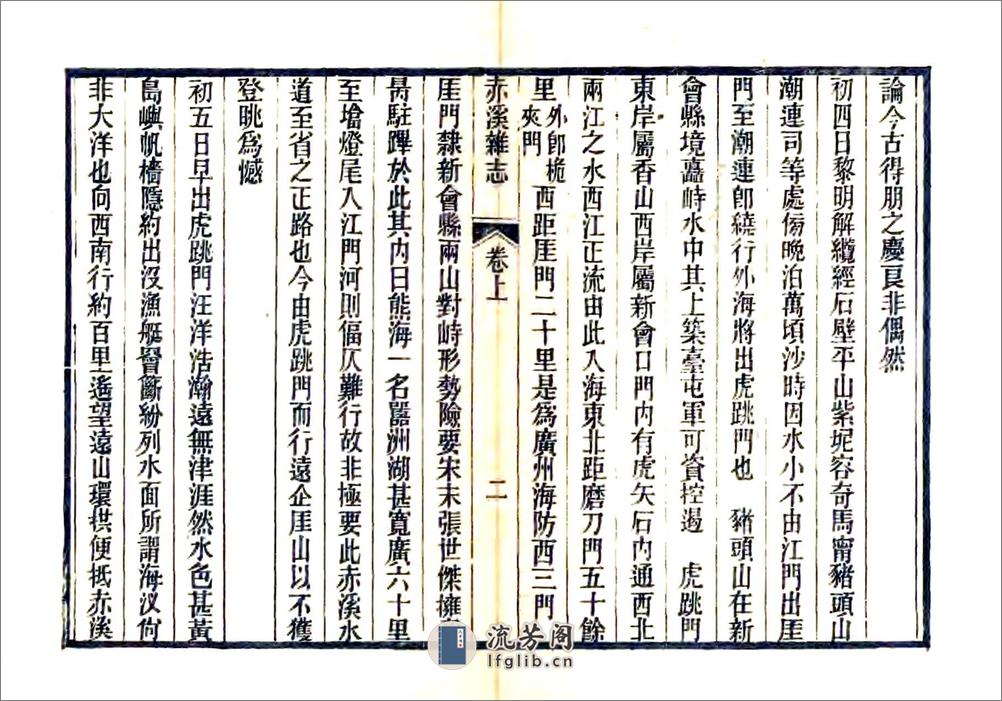 論今古得朋之慶良非偶然
初四日黎明解纜經石壁平山紫坭容奇馬甯豬頭山
潮連司等處傷晚泊萬頃沙時因水小不由江門出厓
門至潮連卽繞行外海將出虎跳門也　豬頭山在新
會縣境矗峙水中其上築臺屯軍可資控遏　虎跳門
東岸屬香山西岸屬新會口門內有虎矢石內通西北
兩江之水西江正流由此入海東北距磨刀門五十餘
里外卽桅夾門西距厓門二十里是爲廣州海防西三門
赤溪雜志　卷上　二
厓門隸新會縣兩山對峙形勢險要宋末張世傑擁
昺駐蹕於此其內曰熊海一名嚣洲湖甚寬廣六十里
至墖燈尾入江門河則偪仄難行故非極要此赤溪水
道至省之正路也今由虎跳門而行遠企厓山以不獲
登眺爲憾
初五日早出虎跳門汪洋浩瀚遠無津涯然水色甚黃
島嶼帆檣隱約出沒漁艇罾籪紛列水面所謂海汊尙
非大洋也向西南行約百里遙望遠山環拱便抵赤溪
流芳阁
lfglib.cn